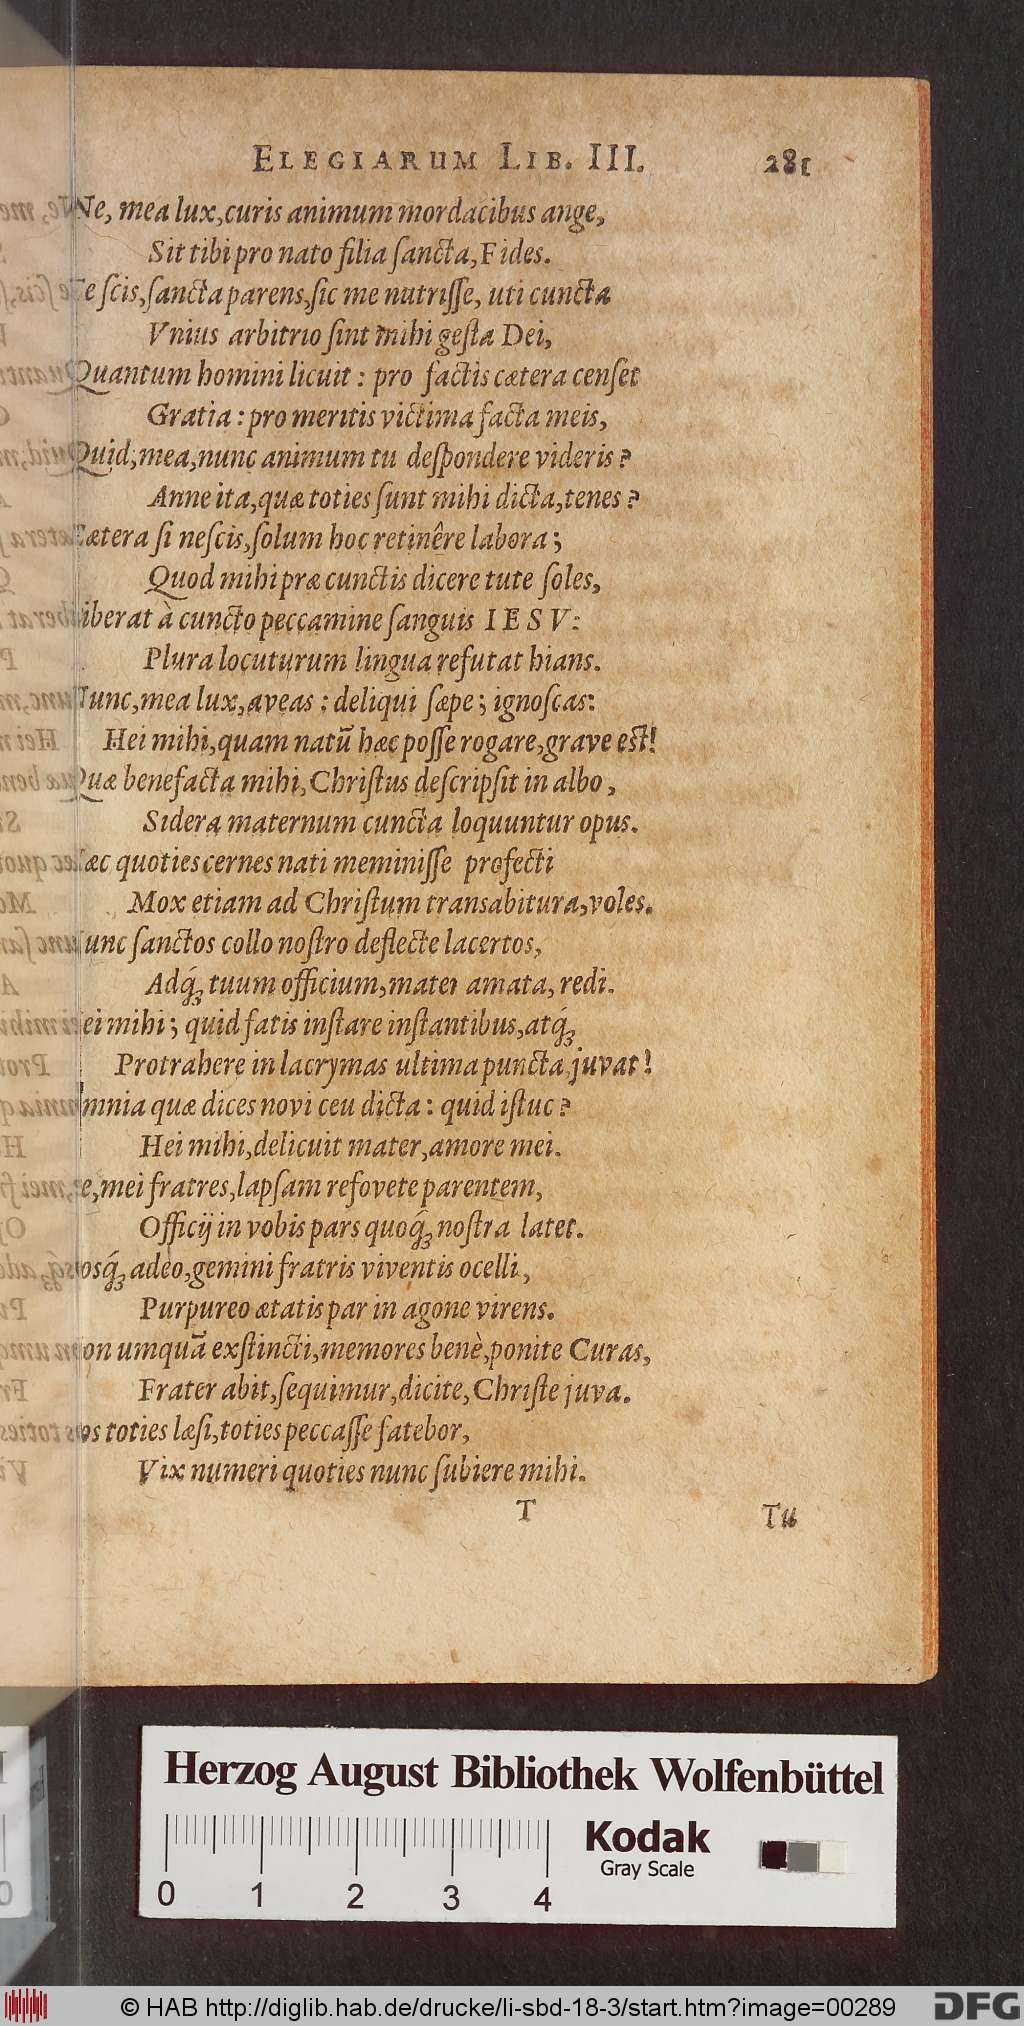 ELEGIARUM LIB. III. 281
Ne, mea lux, curis animum mordacibus ange,
Sit tibi pro nato filia ſancta, Fides.
Te ſcis, ſancta parens, ſic me nutriſſe, uti cuncta
Vnius arbitrio ſint mihi geſta Dei,
Quantum homini licuit : pro factis cætera cenſet
Gratia : pro meritis victima facta meis,
Quid, mea, nunc animum tu deſpondere videris ?
Anne ita, quæ toties ſunt mihi dicta, tenes ?
Cætera ſi neſcis, ſolum hoc retinêre labora ;
Quod mihi præ cunctis dicere tute ſoles,
Liberat à cuncto peccamine ſanguis IESV:
Plura locuturum lingua refutat hians.
Nunc, mea lux, aveas : deliqui ſæpe ; ignoſcas:
Hei mihi, quam natū hæc poſſe rogare, grave eſt!
Quæ benefacta mihi, Chriſtus deſcripſit in albo,
Sidera maternum cuncta loquuntur opus.
Hæc quoties cernes nati meminiſſe profecti
Mox etiam ad Chriſtum transabitura, voles.
Nunc ſanctos collo noſtro deflecte lacertos,
Adq́ꝫ tuum officium, mater amata, redi.
Hei mihi ; quid fatis inſtare inſtantibus, atq́ꝫ
Protrahere in lacrymas ultima puncta juvat !
Omnia quæ dices novi ceu dicta : quid iſtuc ?
Hei mihi, delicuit mater, amore mei.
e, mei fratres, lapſam refovete parentem,
Officij in vobis pars quoq́ꝫ noſtra latet.
Vosq́ꝫ adeo, gemini fratris viventis ocelli,
Purpureo ætatis par in agone virens.
Non umquā exſtincti, memores benè, ponite Curas,
Frater abit, ſequimur, dicite, Chriſte juva.
Vos toties læſi, toties peccaſſe fatebor,
Vix numeri quoties nunc ſubiere mihi.
T Tu
Herzog August Bibliothek Wolfenbüttel
0 1 2 3 4
Kodak
Gray Scale
© HAB http://diglib.hab.de/drucke/li-sbd-18-3/start.htm?image=00289 DFG